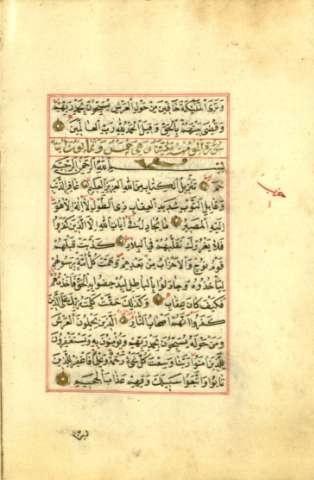 وَتَرَى الْمَلٰئِكَةَ حَافِّينَ مِنْ حَوْلِ الْعَرْشِ يُسَبِّحُونَ بِحَمْدِ رَبِّهِمْ
وَقُضِيَ بَيْنَهُمْ بِالْحَقِّ وَقِيلَ الْحَمْدُ لِلّٰهِ رَبِّ الْعَالَمِينَ
سورة المؤمن وهي خمس وثمانون
بِسْمِ اللّٰهِ الرَّحْمٰنِ الرَّحِيمِ
حٰمٓ تَنْزِيلُ الْكِتَابِ مِنَ اللّٰهِ الْعَزِيزِ الْعَلِيمِ غَافِرِ الذَّنْبِ
وَقَابِلِ التَّوْبِ شَدِيدِ الْعِقَابِ ذِي الطَّوْلِ لَا اِلٰهَ اِلَّا هُوَ
اِلَيْهِ الْمَصِيرُ مَا يُجَادِلُ فِي اٰيَاتِ اللّٰهِ اِلَّا الَّذِينَ كَفَرُوا
فَلَا يَغْرُرْكَ تَقَلُّبُهُمْ فِي الْبِلَادِ كَذَّبَتْ قَبْلَهُمْ
قَوْمُ نُوحٍ وَالْاَحْزَابُ مِنْ بَعْدِهِمْ وَهَمَّتْ كُلُّ اُمَّةٍ بِرَسُولِهِمْ
لِيَأْخُذُوهُ وَجَادَلُوا بِالْبَاطِلِ لِيُدْحِضُوا بِهِ الْحَقَّ فَاَخَذْتُهُمْ
فَكَيْفَ كَانَ عِقَابِ وَكَذٰلِكَ حَقَّتْ كَلِمَتُ رَبِّكَ عَلَى الَّذِينَ
كَفَرُوا اَنَّهُمْ اَصْحَابُ النَّارِ اَلَّذِينَ يَحْمِلُونَ الْعَرْشَ
وَمَنْ حَوْلَهُ يُسَبِّحُونَ بِحَمْدِ رَبِّهِمْ وَيُؤْمِنُونَ بِهِ وَيَسْتَغْفِرُونَ
لِلَّذِينَ اٰمَنُوا رَبَّنَا وَسِعْتَ كُلَّ شَيْءٍ رَحْمَةً وَعِلْمًا فَاغْفِرْ لِلَّذِينَ
تَابُوا وَاتَّبَعُوا سَبِيلَكَ وَقِهِمْ عَذَابَ الْجَحِيمِ
حزب
ربنا